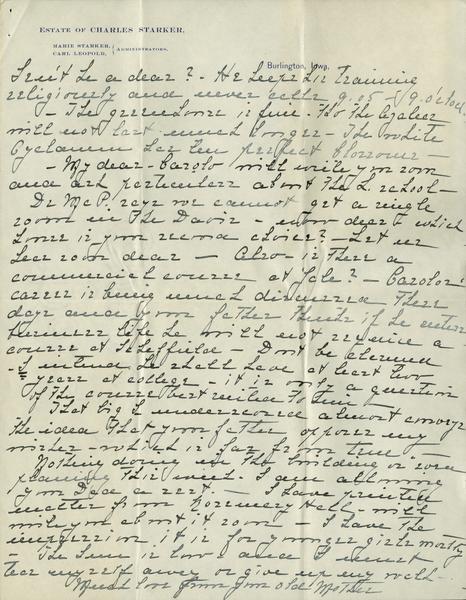 ESTATE OF CHARLES STARKER,
MARIE STARKER,
CARL LEOPOLD, } ADMINISTRATORS.
Burlington, Iowa,
Isn't he a dear? - He keeps his training
religiously and never eats 9.05 - (9 o'clock)
- The greenhouse is fine - tho the Azaleas
will not last much longer - The white
Cyclamen has ten perfect blossoms -
- My dear - Carolo will write you soon
and ask particulars about the L. school -
Dr McP. says we cannot get a single
room in the Davis - now dear which
house is your second choice? - Let us
hear soon dear - Also is there a
commercial course at Yale? - Carolo's
career is being much discussed these
days and your father thinks if he enters
business life he will not require a
course at Sheffield - Don't be alarmed
- I intend he shall have at least two
years at college - it is only a question
of the course best suited to him
That big L underscored almost conveys
the idea that your father opposes my
wishes - which is far from true -
Nothing doing in the building or
planning this week. I am allowing
your Dad a rest. - I have printed
matter from Rosemary Hall - will
write you about it soon - I have the
impression it is for younger girls mostly
- The sun is low and I must
tear myself away or give up my walk -
Much love from your old Mother